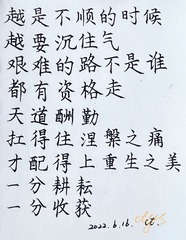 越是不顺的时候
越要沉住气
艰难的路不是谁
都有资格走
天道酬勤
扛得住涅槃之痛
才配得上重生之美
一分耕耘
一分收获
2022.6.16.